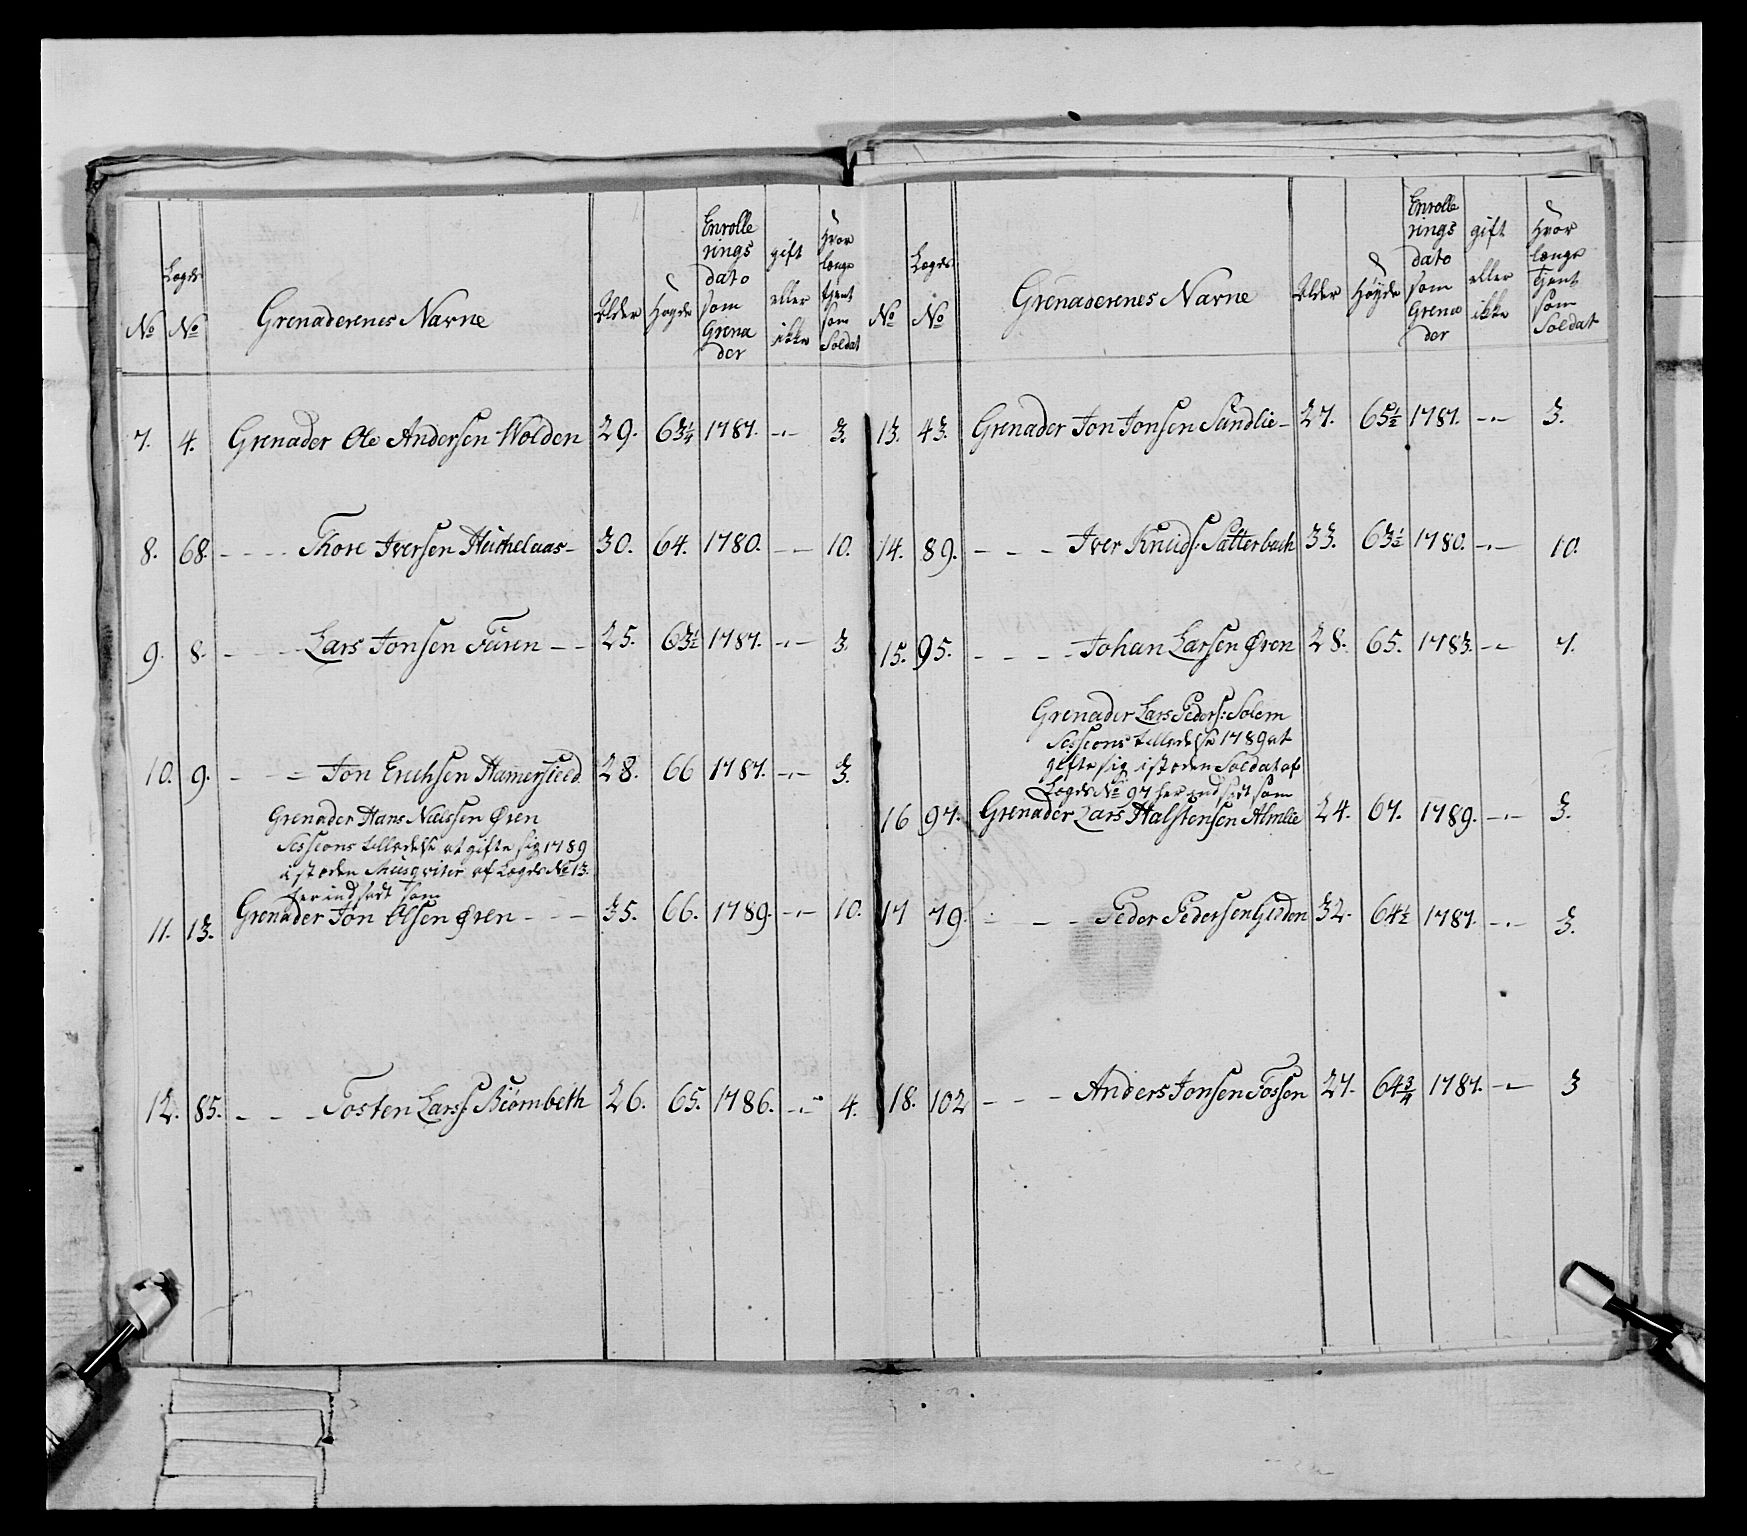 No
Lægds No
Grenaderenes Navne
Alder
Høyde
Enrolle
rings
dato
som
Grena
der
gift
eller
ikke
Hvor
længe
tjent
som
Soldat
7. 4. Grenader Ole Andersen Wolden 29. 63¼ 1787. -.- 3.
8. 68. - - - - Thore Iversen 30. 64. 1780. - - 10.
9. 8. - - - - Lars Jonsen Füren - - 25. 63½ 1787. -.- 3.
10. 9. - - - Jon Erichsen 28. 66 1787. -.- 3.
Grenader Hans Nielssen Øren
Sessions tilladelse at gifte sig 1789
isteden Musqvitir af Lægds No 13.
her indsadt som
11. 13. Grenader Jon Olsen Øren - - - 35. 66. 1789. -.- 10.
12. 85. - - - - Tosten Larss: Biørnbeth 26. 65. 1786. -.- 4.
No
Lægds No
Grenaderenes Navne
Alder
Høyde
Enrolle
rings
dato
som
Grena
der
gift
eller
ikke
Hvor
længe
tjent
som
Soldat
13. 43. Grenader Jon Jonsen Sundlie - 27. 65½ 1787. -.- 3.
14. 89. - - - Iver Knuds: Sætterbach 33. 63½ 1780. -.- 10.
15. 95. - - - - Johan Larsen Øren 28. 65. 1783. -.- 7.
Grenader Lars Peders: Solem
Sessions tilladelse 1789 at
gifte sig isteden Soldat af
Lægds No 97 her indsadt som
16 97. Grenader Lars Halstensen Almlie 24. 67. 1789. -.- 3.
17 79. - - - - Peder Pedersen 32. 64½ 1787. -.- 3.
18. 102 - - - Anders Jonsen Fossen 27. 64¾ 1787. -.- 3